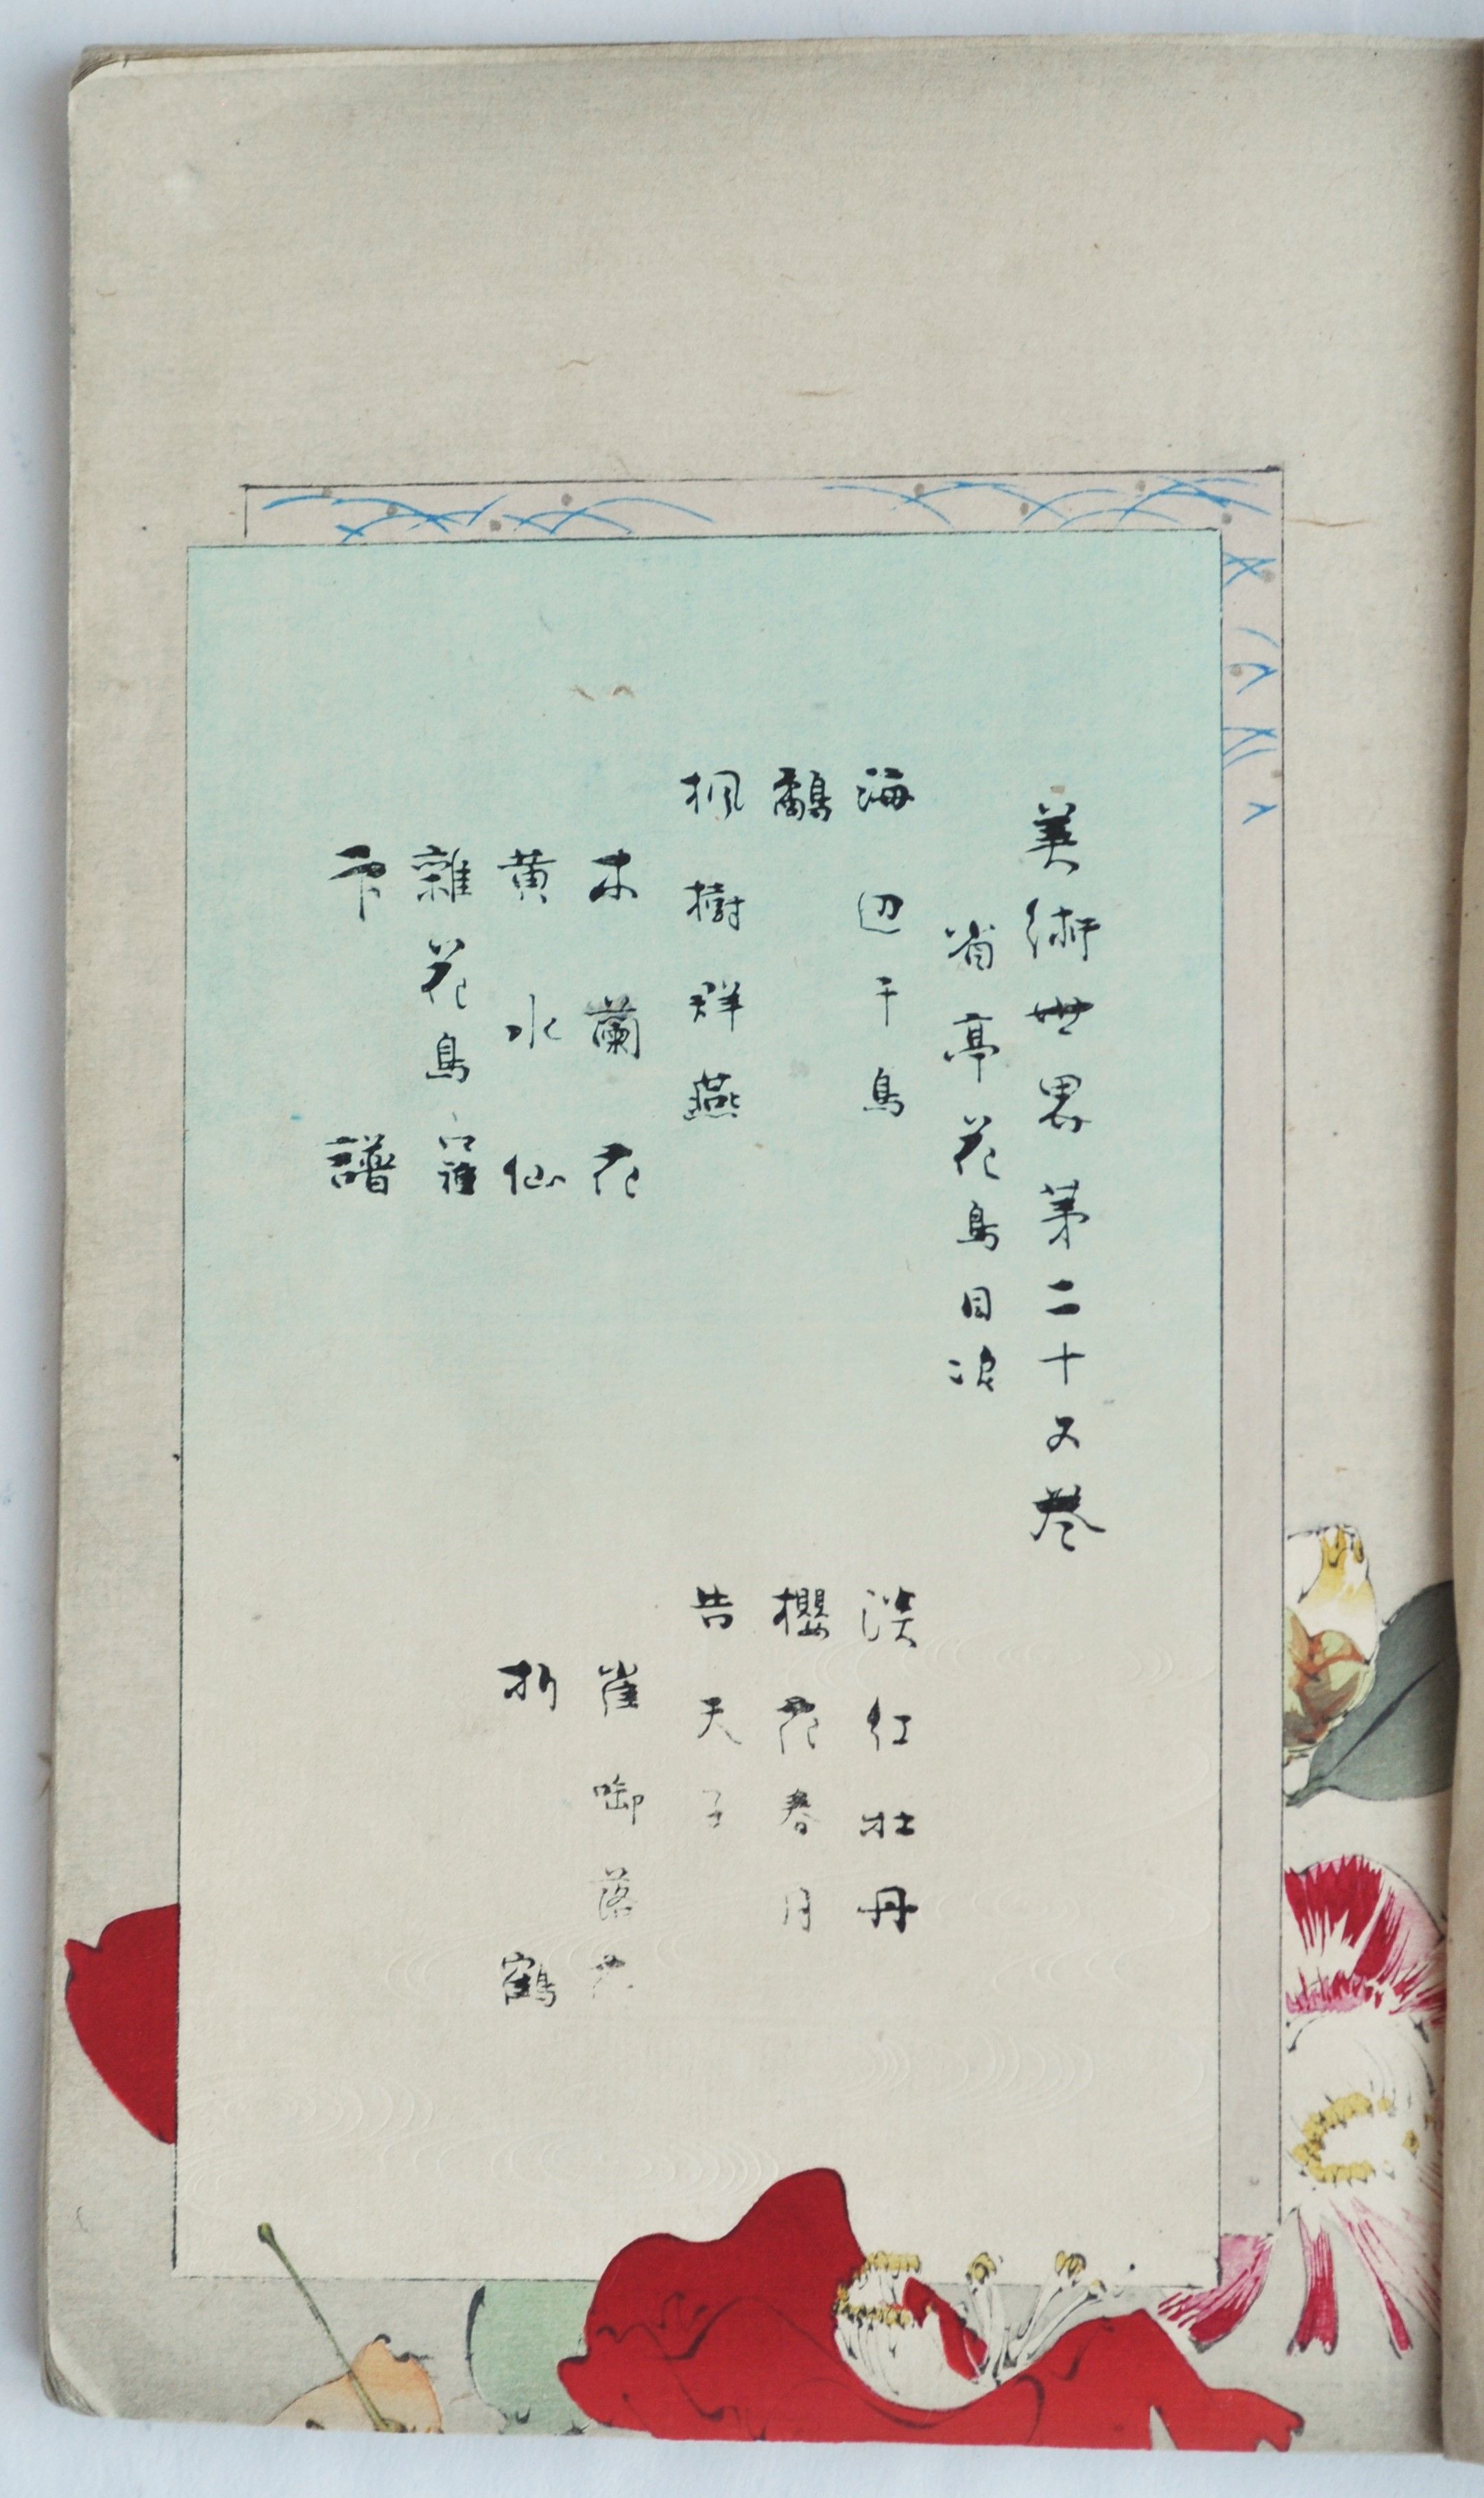 美術世界第二十五巻
省亭花鳥目次
海辺千鳥
淡紅牡丹
鷸
櫻花春月
楓樹群燕
告天子
木蘭花
雀啣落花
黄水仙
折鶴
雑花鳥
譜